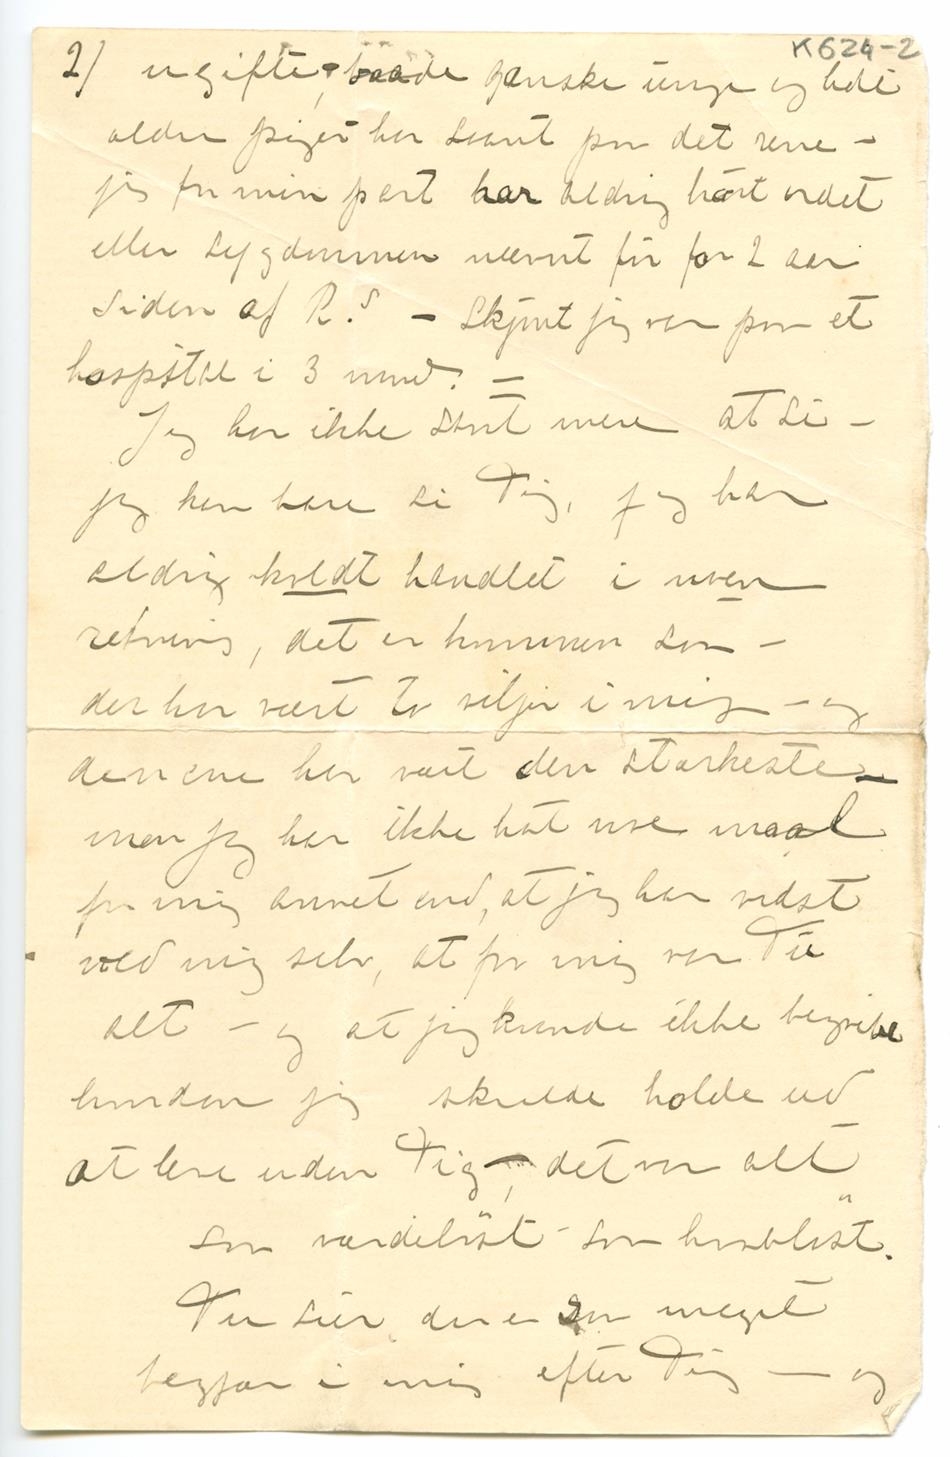 K624-2
2/ ugifte, baade ganske unge og lidt
ældre piger har svært for det rene –
jeg for min part har aldrig hørt ordet
eller sygdommen nævnt før for 2 aar
siden af R.S – skjønt jeg var paa et
hospital i 3 mned. –
Jeg har ikke stort mere at si –
jeg kan bare si Dig, jeg har
aldrig koldt handlet i noen
retning, det er kommen saa –
der har vært to viljer i mig – og
den ene har vært den stærkeste –
men jeg har ikke hat noe maal
for mig annet end, at jeg har vidst
ved mig selv, at for mig var Du
alt – og at jeg kunde ikke begribe
hvordan jeg skulde holde ud
at leve uden Dig –, det var alt
saa værdiløst – saa haabløst.
Du sier, der er saa meget
begjær i mig efter Dig – og